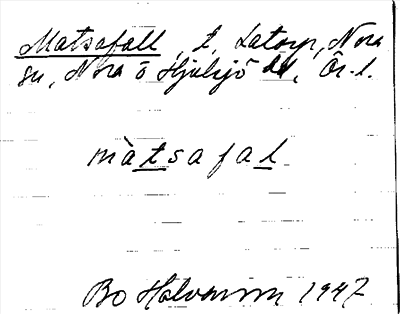 Matsafall, t, Latorp, Nora
sn, Nora o Hjulsjö bl, Ör. l.
màtsafal
Bo Halvarsson 1947